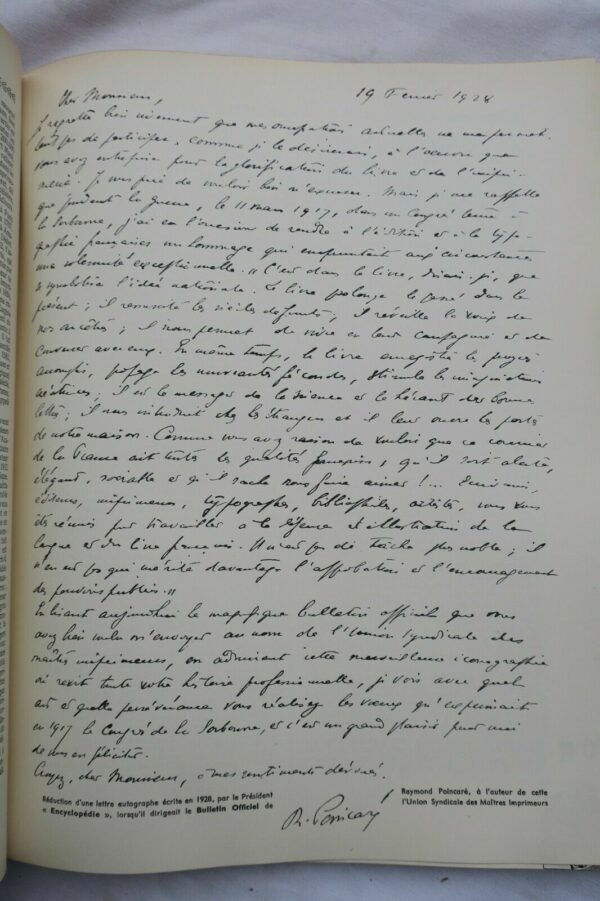 19 Février 1928
Cher Monsieur,
Je regrette bien vivement que mes occupations actuelles ne me permet-
tent pas de participer, comme je le désirerais, à l'oeuvre que
vous avez entreprise pour la glorification du livre et de l'impri-
merie. Je vous prie de vouloir bien m'excuser. Mais je me rappelle
que pendant la guerre, le 11 mars 1917, dans un Congrès tenu à
la Sorbonne, j'ai eu l'occasion de rendre à l'édition et à la typo-
graphie françaises un hommage qui empruntait aux circonstances
une solennité exceptionnelle. « C'est dans le livre, disais-je, que
se symbolise l'idée nationale. Le livre prolonge le passé dans le
présent ; il ressuscite les vieilles défunts, il réveille la voix de
nos ancêtres ; il nous permet de vivre en leur compagnie et de
converser avec eux. En même temps, le livre enregistre les progrès
accomplis, propage les nouveautés fécondes, stimule les imaginations
créatrices ; il est le messager de la science et le héraut des bonnes
lettres ; il nous introduit chez les étrangers et il leur ouvre les portes
de notre maison. Comme vous avez raison de vouloir que ce courrier
de la France ait toutes les qualités françaises, qu'il soit alerte,
élégant, sociable et qu'il sache nous faire aimer !... Écrivains,
éditeurs, imprimeurs, typographes, bibliophiles, artistes, vous vous
êtes réunis pour travailler à la défense et illustration de la
langue et du livre français. Il n'est pas de tâche plus noble ; il
n'en est pas qui mérite davantage l'approbation et l'encouragement
des pouvoirs publics. »
En lisant aujourd'hui le magnifique bulletin officiel que vous
avez bien voulu m'envoyer au nom de l'Union syndicale des
maîtres imprimeurs, en admirant cette merveilleuse iconographie
où revit toute votre histoire professionnelle, je vois avec quel
art et quelle persévérance vous réalisez les voeux qu'exprimait
en 1917 le Congrès de la Sorbonne, et c'est un grand plaisir pour moi
de vous en féliciter.
Croyez, cher Monsieur, à mes sentiments dévoués.
R. Poincaré
Réduction d'une lettre autographe écrite en 1928, par le Président Raymond Poincaré, à l'auteur de cette
« Encyclopédie », lorsqu'il dirigeait le Bulletin Officiel de l'Union Syndicale des Maîtres Imprimeurs